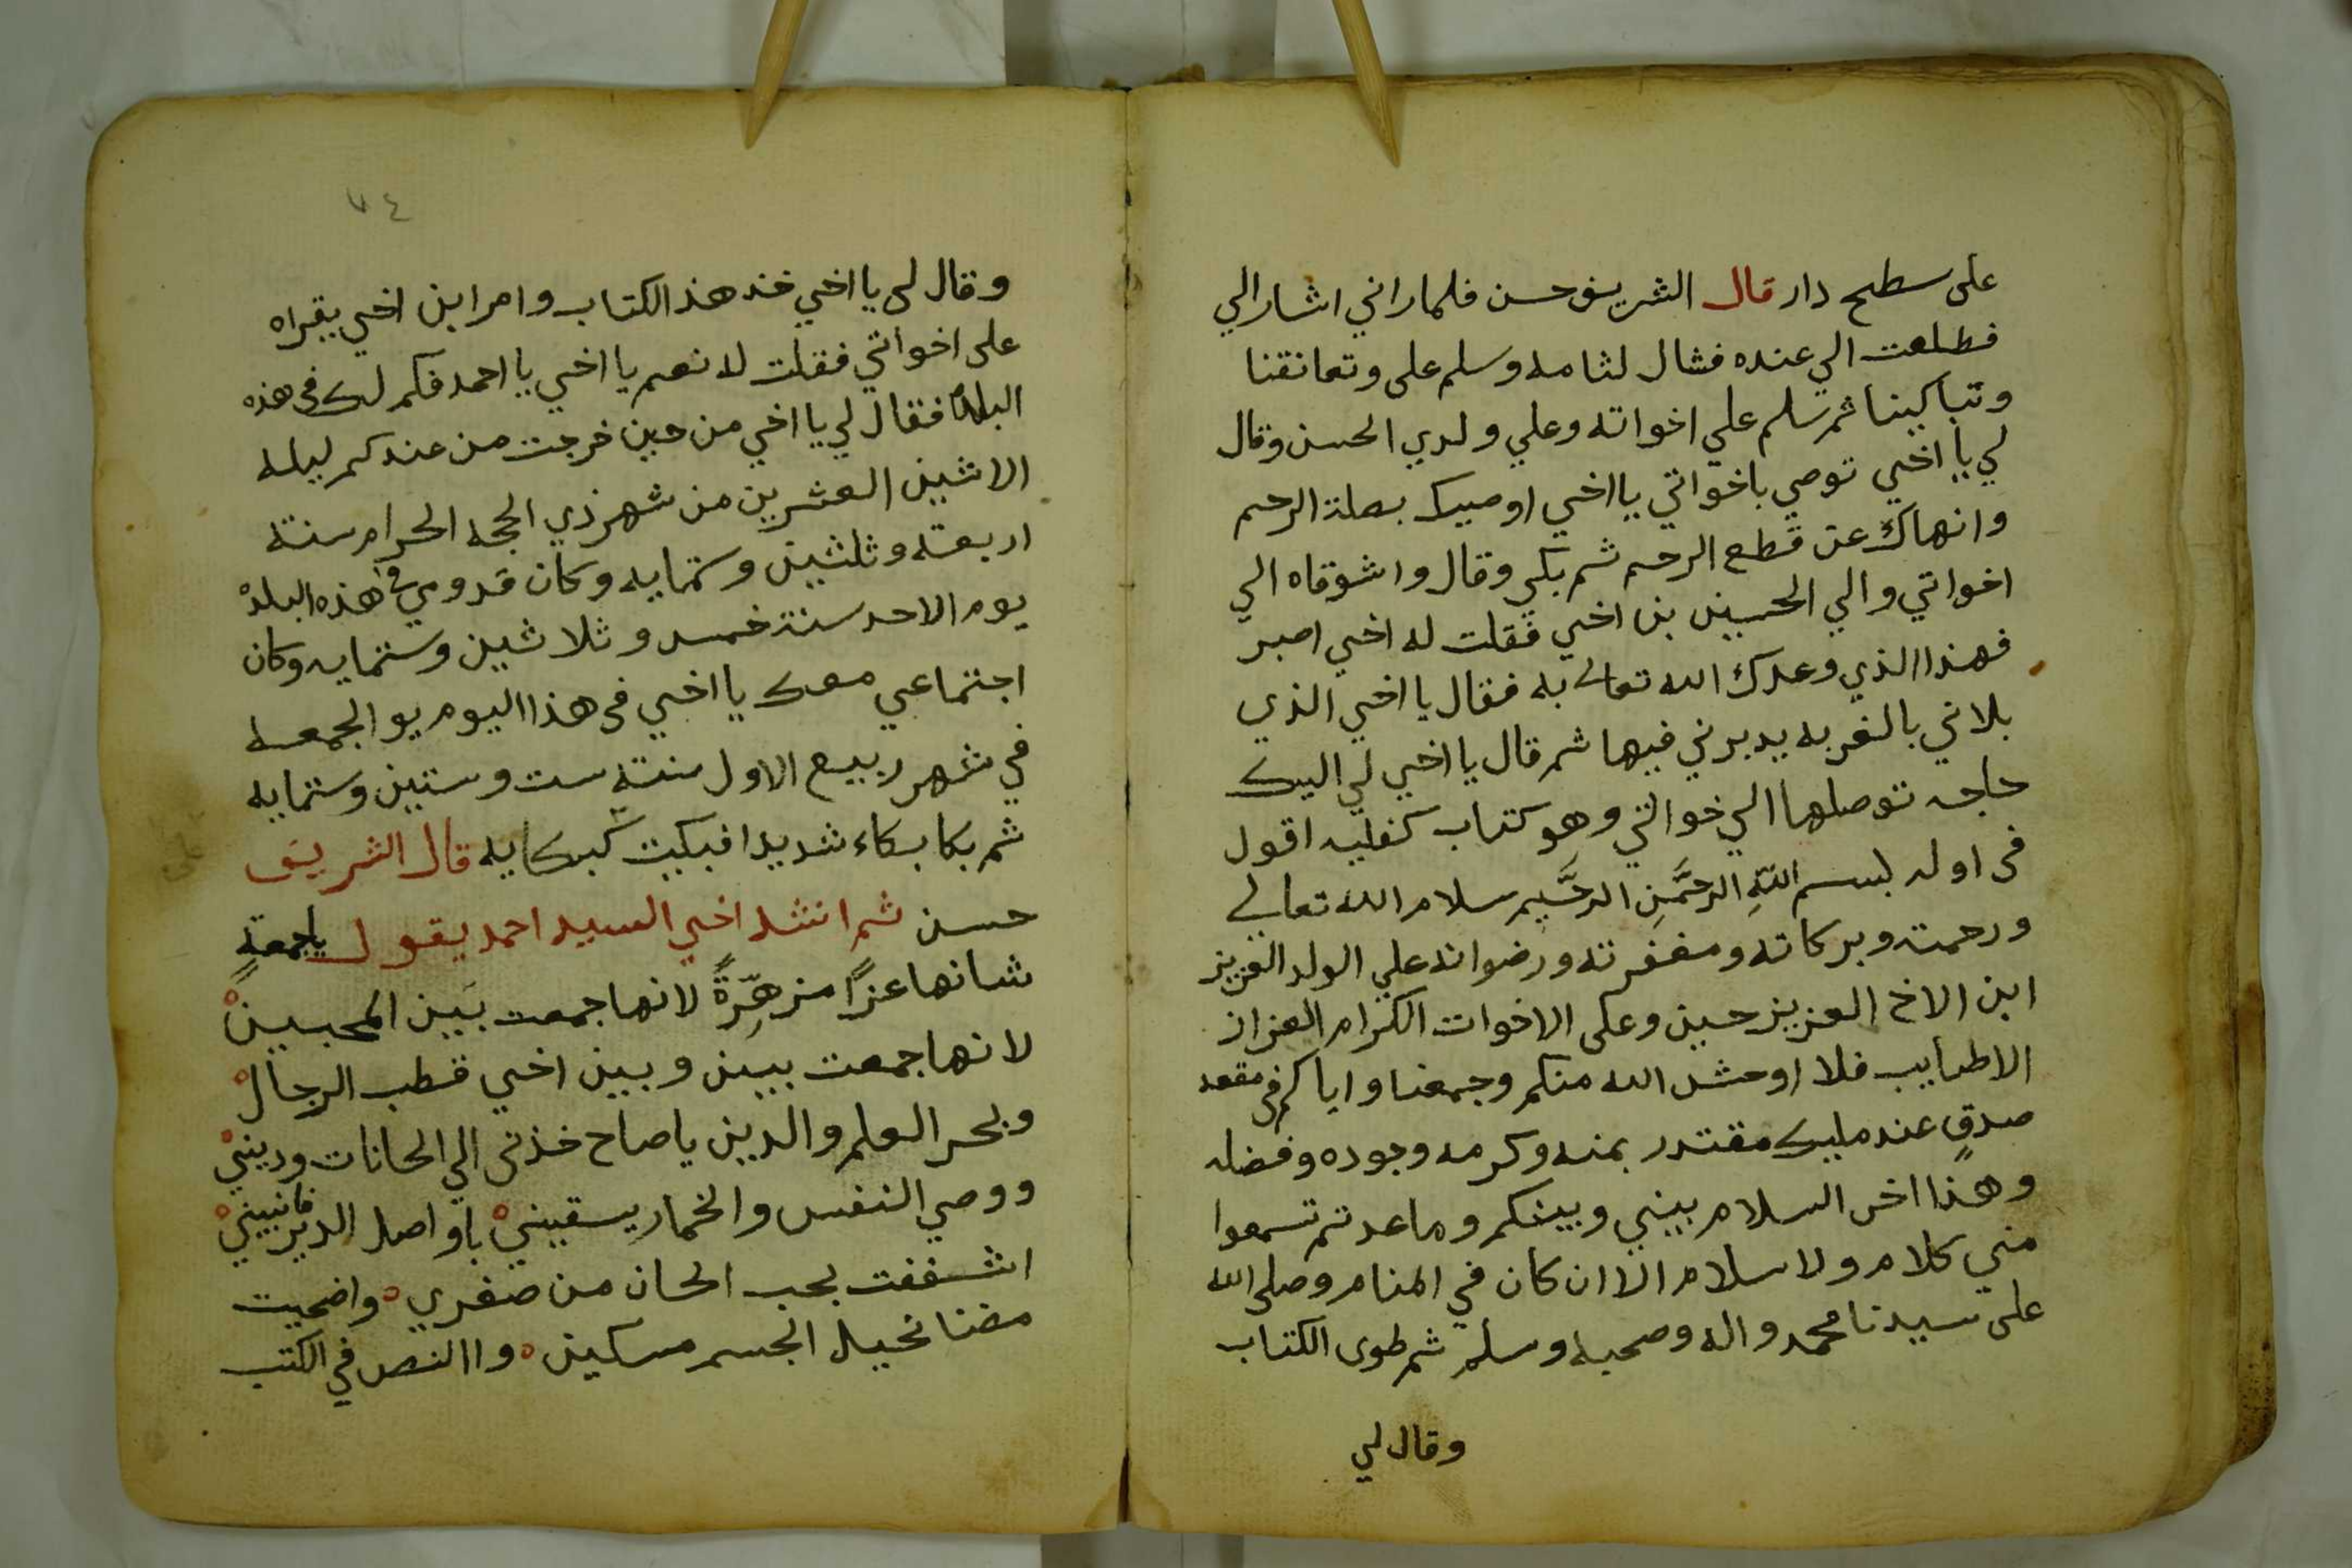 على سطح دار قال الشريف حسن فلما راني اشار الي
فطلعت الي عنده فشال لثامه وسلم على وتعانقنا
وتباكينا ثم سلم علي اخواته وعلي ولدي الحسن وقال
لي يا اخي توصي باخواتي يا اخي اوصيك بصلة الرحم
وانهاك عن قطع الرحم ثم بكي وقال واشوقاه الي
اخواتي والي الحسين بن اخي فقلت له اخي اصبر
فهذا الذي وعدك الله تعالى به فقال يا اخي الذي
بلاني بالغربه يدبرني فيها ثم قال يا اخي لي اليك
حاجه توصلها الي خواتي وهو كتاب كنفليه اقول
فى اوله بسم اللهِ الرحمَنِ الرحَيمِ سلام الله تعالي
ورحمته وبركاته ومغفرته ورضوانه علي الولد العزيز
ابن الاخ العزيز حسين وعلى الاخوات الكرام العزاز
الاطايب فلا اوحش الله منكم وجمعنا واياكم فى مقعد
صدقٍ عند مليك مقتدر بمنه وكرمه وجوده وفضله
وهذا اخر السلام بيني وبينكم وما عدتم تسمعوا
مني كلام ولا سلام الا ان كان في المنام وصلى الله
على سيدنا محمد واله وصحبه وسلم ثم طوى الكتاب
وقال لي
٧٤
وقال لى يا اخي خذ هذ الكتاب وامر ابن اخي يقراه
على اخواتي فقلت لا نعم يا اخي يا احمد فكم لك فى هذه
البلد فقال لي يا اخي من حين خرجت من عندكم ليله
الاثنين العشرين من شهر ذي الحجه الحرام سنة
اربعة وثلثين وستمايه وكان قدومي في هذه البلد
يوم الاحد سنة خمس وثلاثين وستمايه وكان
اجتماعي معك يا اخي فى هذا اليوم يو الجمعه
في شهر ربيع الاول سنة ست وستين وستمايه
ثم بكا بكاء شديدا فبكيت كبكايه قال الشريف
حسن ثم انشد اخي السيد احمد يقول ياجمعةٍ
شانها عزاً مزهِرّةً لانها جمعت بَين المحبين
لانها جمعت بيىن وبين اخي قطب الرجال
وبحر العلم والدين يا صاح خذنى الي الحانات ودينيْ
ووصي النفس والخمار يسقيني باواصل الدير فانيينيْ
اشغفت بحب الحان من صغري واضحيت
مضنا نحيل الجسم مسكين واالنص في الكتب